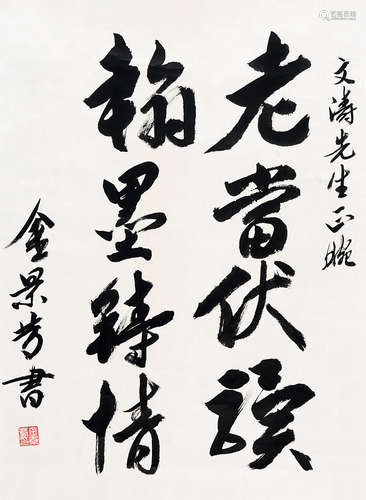 文涛先生正腕
老當伏驥
翰墨鑄情
金景芳書